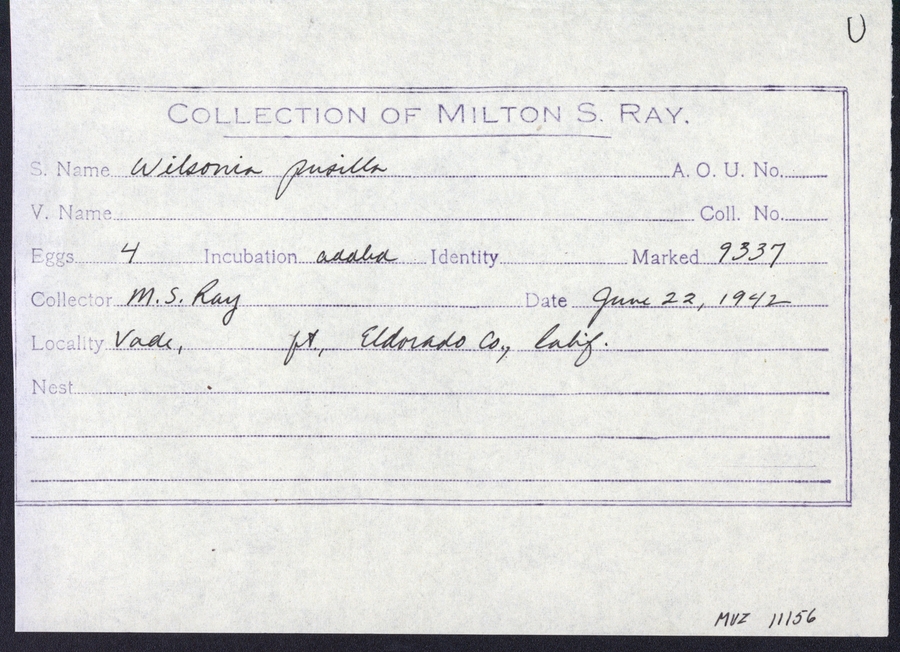 U
COLLECTION OF MILTON S. RAY.
S. Name Wilsonia pusilla A. O. U. No.
V. Name Coll. No.
Eggs 4 Incubation addled Identity Marked 9337
Collector M. S. Ray Date June 22, 1942
Locality Vade, ft, Eldorado Co., Calif.
Nest
MVZ 11156